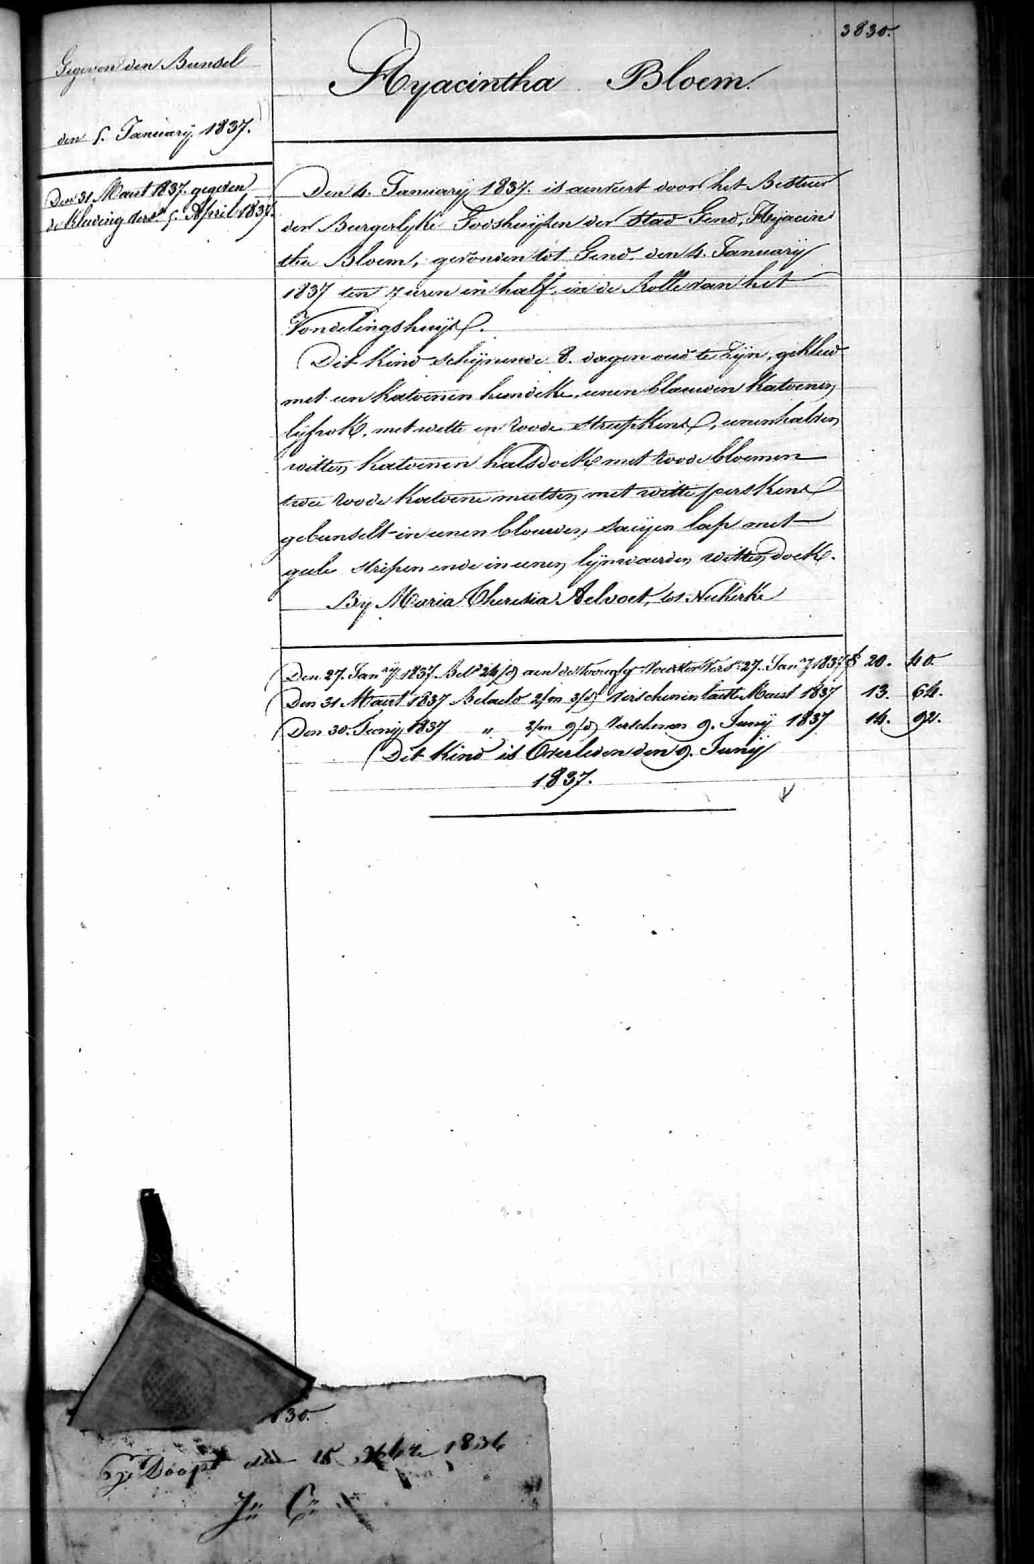 3830.
Hyacintha Bloem.
Gegeven den Bundel
den 5. January 1837.
Den 31 Maart 1837. gegeven
de kleeding vers. 5. April 1837.
Den 4. January 1837. is aenveert door het Bestuur
der Burgerlyke Godshuijsen der Stad Gend, Hyacin
tha Bloem, gevonden tot Gend den 4. January
1837 ten 7 uren en half, in de Rolle van het
Vondelingshuijs.
Dit kind schijnende 8. dagen oud te zijn, gekleed
met een katoenen hemdeke, eenen blauwen katoenen
lijfrok, met witte en roode streepkens, eenen halven
witten katoenen halsdoek met roode bloemen
twee roode katoene mutsen met witte perskens
gebunselt in eenen blauwen saeijen lap met
geele stripen ende in eenen lijnwaerden witten doek.
By Maria Theresia Aelvoet, tot Nukerke
Den 27. Jany 1837. Bet 24/d aen de Voedster Vers. 27. Jany 1837 f 20. 40.
Den 31 Maart 1837 Betaelt 2/m 3/d Verschenen laatst Maart 1837 13. 64.
Den 30. Junij 1837 " 2/m 9/d Verschenen 9. Junij 1837 14. 92.
Dit Kind is Overleden den 9. Junij
1837.
30.
Gedoopt den 1836